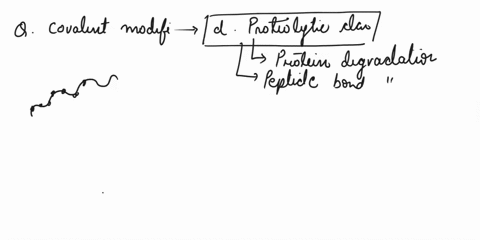 Q. Covalent modifi → d. Proteolytic clav
↳ Protein degradation
↳ Peptide bond "